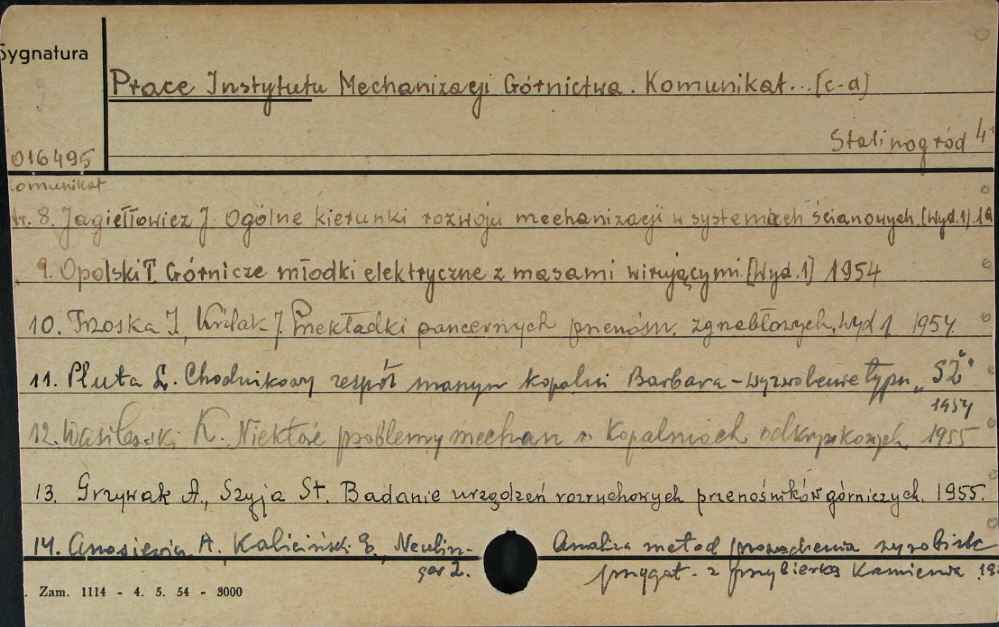 Sygnatura
Prace Instytutu Mechanizacji Górnictwa. Komunikat... [c-d]
Stalinogród 4°
016495
Komunikat
nr. 8. Jagiełłowicz J. Ogólne kierunki rozwoju mechanizacji w systemach ścianowych. [Wyd.1] 19
9. Opolski T. Górnicze młodki elektryczne z masami wirującymi [Wyd.1] 1954
10. Trzoska J, Królak J. Przekładki pancernych przenośn. zgrzebłowych, Wyd 1 1954
11. Pluta L. Chodnikowy zespół maszyn kopalni Barbara - Wyzwolenie typu „SŻ"
1954
12. Wasilewski K. Niektóre problemy mechan w kopalniach odkrywkowych 1955
13. Grzywak A., Szyja St. Badanie urządzeń rozruchowych przenośników górniczych. 1955.
14. A. Kaliciński Analiza metod prowadzenia wyrobisk
przygot. z przybierką kamienia 19
Zam. 1114 - 4. 5. 54 - 3000